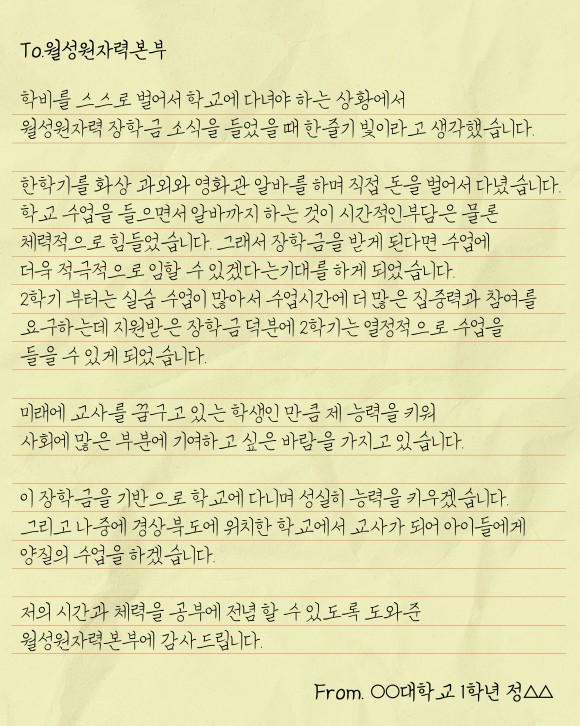 To.월성원자력본부
학비를 스스로 벌어서 학교에 다녀야 하는 상황에서
월성원자력 장학금 소식을 들었을 때 한줄기 빛이라고 생각했습니다.
한학기를 화상 과외와 영화관 알바를 하며 직접 돈을 벌어서 다녔습니다.
학교 수업을 들으면서 알바까지 하는 것이 시간적인부담은 물론
체력적으로 힘들었습니다. 그래서 장학금을 받게 된다면 수업에
더욱 적극적으로 임할 수 있겠다는기대를 하게 되었습니다.
2학기 부터는 실습 수업이 많아서 수업시간에 더 많은 집중력과 참여를
요구하는데 지원받은 장학금 덕분에 2학기는 열정적으로 수업을
들을 수 있게 되었습니다.
미래에 교사를 꿈꾸고 있는 학생인 만큼 제 능력을 키워
사회에 많은 부분에 기여하고 싶은 바람을 가지고 있습니다.
이 장학금을 기반으로 학교에 다니며 성실히 능력을 키우겠습니다.
그리고 나중에 경상북도에 위치한 학교에서 교사가 되어 아이들에게
양질의 수업을 하겠습니다.
저의 시간과 체력을 공부에 전념할 수 있도록 도와준
월성원자력본부에 감사드립니다.
From. ○○대학교 1학년 정△△